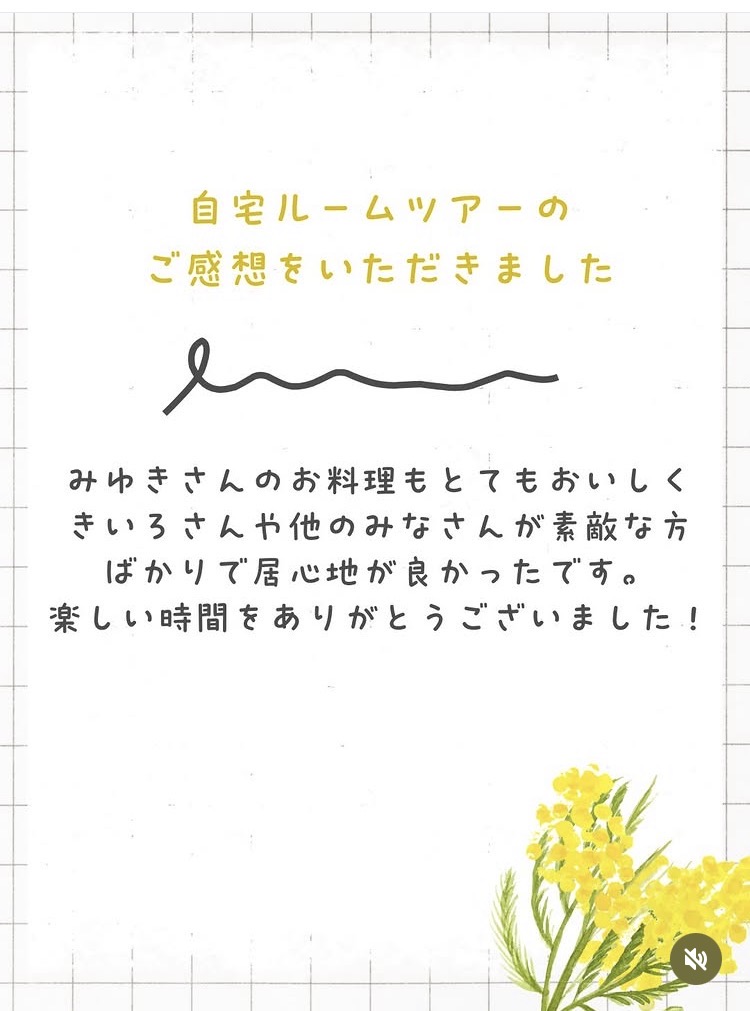 自宅ルームツアーの
ご感想をいただきました
みゆきさんのお料理もとてもおいしく
きいろさんや他のみなさんが素敵な方
ばかりで居心地が良かったです。
楽しい時間をありがとうございました！